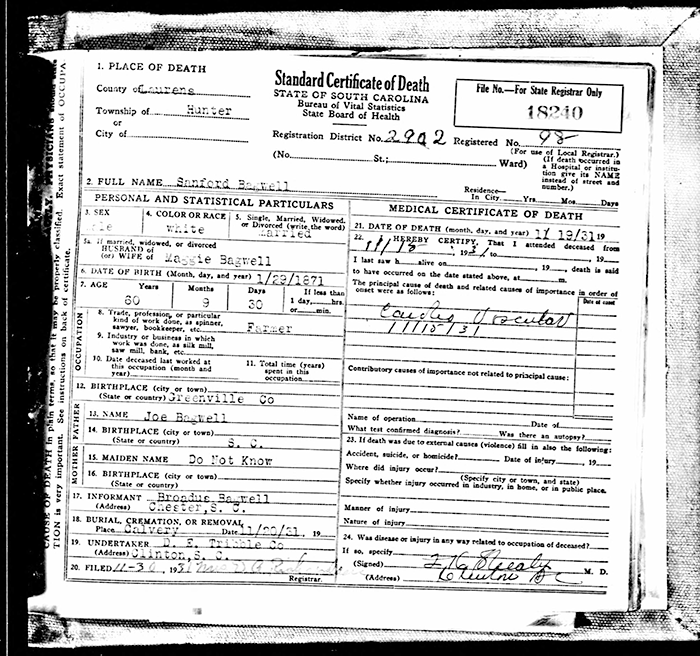 1. PLACE OF DEATH
County of Laurens
Township of Hunter
or
City of
Standard Certificate of Death
STATE OF SOUTH CAROLINA
Bureau of Vital Statistics
State Board of Health
File No.—For State Registrar Only
18240
Registration District No. 2902 Registered No. 98
(For use of Local Registrar.)
(No. St.; Ward)
(If death occurred in
a Hospital or institu-
tion give its NAME
instead of street and
number.)
2. FULL NAME Sanford Bagwell
Residence—
In City Yrs. Mos. Days
PERSONAL AND STATISTICAL PARTICULARS
3. SEX
4. COLOR OR RACE
white
5. Single, Married, Widowed,
or Divorced (write the word)
married
5a. If married, widowed, or divorced
HUSBAND of
(or) WIFE of Maggie Bagwell
6. DATE OF BIRTH (Month, day, and year) 1/29/1871
7. AGE Years Months Days If less than
60 9 30 1 day, hrs.
or min.
OCCUPATION
8. Trade, profession, or particular
kind of work done, as spinner,
sawyer, bookkeeper, etc. Farmer
9. Industry or business in which
work was done, as silk mill,
saw mill, bank, etc.
10. Date deceased last worked at
this occupation (month and
year)
11. Total time (years)
spent in this
occupation
12. BIRTHPLACE (city or town)
(State or country) Greenville Co
FATHER
13. NAME Joe Bagwell
14. BIRTHPLACE (city or town)
(State or country) S. C.
MOTHER
15. MAIDEN NAME Do Not Know
16. BIRTHPLACE (city or town)
(State or country)
17. INFORMANT Broadus Bagwell
(Address) Chester, S. C.
18. BURIAL, CREMATION, OR REMOVAL
Place Calvery Date 11/20/31, 19
19. UNDERTAKER D. E. Tribble Co
(Address) Clinton, S. C.
20. FILED 11-3 , 1931
Registrar.
MEDICAL CERTIFICATE OF DEATH
21. DATE OF DEATH (month, day, and year) 11 19/31 19
22. I HEREBY CERTIFY, That I attended deceased from
11/18, 1931 to , 19
I last saw h alive on , 19 , death is said
to have occurred on the date stated above, at m.
The principal cause of death and related causes of importance in order of
onset were as follows:
Date of onset
Cardio Vascular
11/15/31
Contributory causes of importance not related to principal cause:
Name of operation Date of
What test confirmed diagnosis? Was there an autopsy?
23. If death was due to external causes (violence) fill in also the following:
Accident, suicide, or homicide? Date of injury , 19
Where did injury occur?
(Specify city or town, and state)
Specify whether injury occurred in industry, in home, or in public place.
Manner of injury
Nature of injury
24. Was disease or injury in any way related to occupation of deceased?
If so, specify
(Signed) M. D.
(Address) Clinton SC
CAUSE OF DEATH in plain terms, so that it may be properly classified. Exact statement of OCCUPA
TION is very important. See instructions on back of certificate.